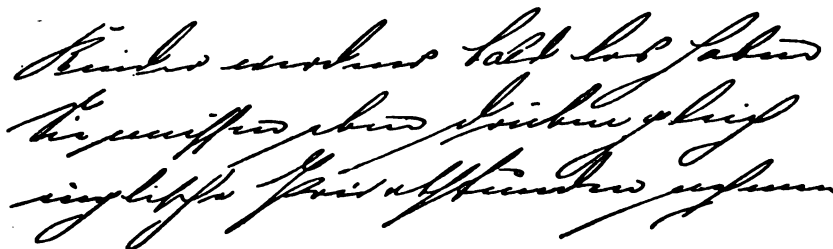 Kinder werdens bald los haben
Sie müssen eben drüben gleich
englische Privatstunden nehmen